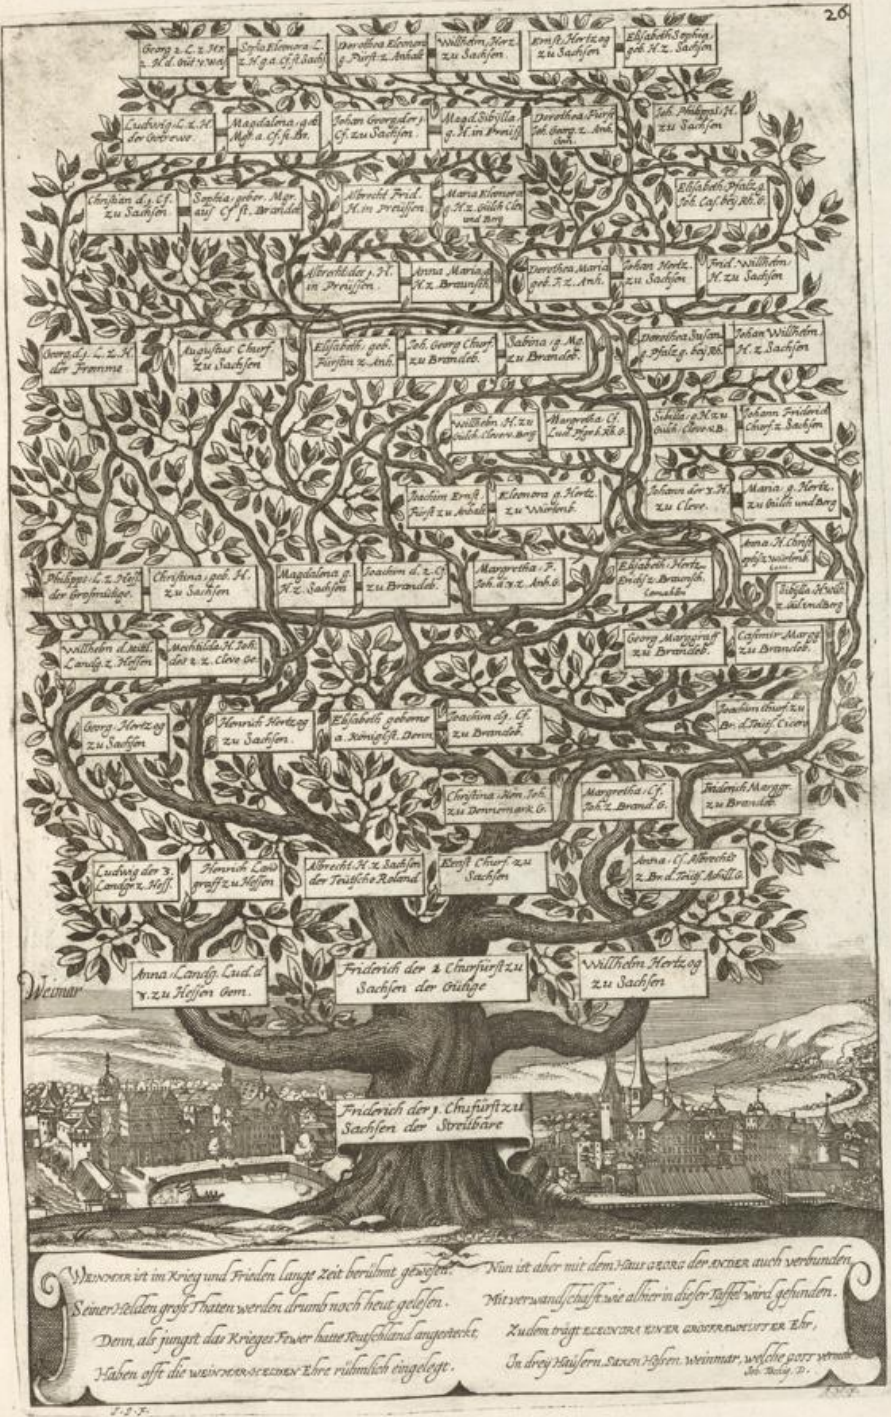 26
Georg 2. L. z. H.
Sofia Eleonora L.
Dorothea Eleonora
g. Fürst. z. Anhalt
Willhelm, Herz.
zu Sachsen.
Ernst, Hertzog
zu Sachsen.
Elisabeth Sophia,
geb. H. z. Sachsen
Ludwig, L. z. H.
der Getrewe.
Magdalena, geb.
Johan Georg, der 1.
Cf. zu Sachsen.
Magd. Sibylla,
g. H. in Preuss.
Dorothea, Fürst
Joh. Georg. z. Anh.
Gem.
Joh. Philipps, H.
zu Sachsen.
Christian d. 1. Cf.
zu Sachsen
Sophia, gebor. Mgr.
aus Cf. st. Brandeb.
Albrecht Frid.
H. in Preussen.
Maria Eleonora
g. H. z. Gülch Cleve
und Berg
Elisabeth Pfalzg.
Joh. Cas. bey Rh. G.
Albrecht der 1. H.
in Preussen.
Anna Maria, g.
H. z. Braunsch.
Dorothea Maria
geb. F. z. Anh.
Johan Hertz.
zu Sachsen
Frid. Willhelm,
H. zu Sachsen
Georg d. 1. L. z. H.
der Fromme.
Augustus Churf.
zu Sachsen
Elisabeth, geb.
Fürstin z. Anh.
Joh. Georg Churf.
zu Brandeb.
Sabina, g. Mg.
zu Brandeb.
Dorothea Susan.
g. Pfalzg. bey Rh.
Johan Willhelm
H. z. Sachsen.
Wilhelm, H. zu
Gülch. Cleve v. Berg
Margretha Cf.
Lud. Pfgr. b. Rh. G.
Sibilla, g. H. zu
Gülch. Cleve v. B.
Johann Friderich
Churf. z. Sachsen
Joachim Ernst.
Fürst zu Anhalt
Eleonora g. Hertz.
zu Würtenb.
Johann der 3. H.
zu Cleve.
Maria g. Hertz.
zu Gülch und Berg
Anna, H. Christ
ophs z. Würtenb.
Gem.
Philipps, L. z. Hess.
der Grosmütige.
Christina, geb. H.
zu Sachsen.
Magdalena g.
H. z. Sachsen
Joachim d. 2. Cf.
zu Brandeb.
Margretha, F.
Elisabeth, Hertz.
Erichs z. Braunsch.
Gemahlin
Sibylla H. Wilh.
z. Gül. und Berg
Willhelm d. mitl.
Landg. z. Hessen
Mechtilda, H. Joh.
des 2. z. Cleve Ge.
Georg Marggraff
zu Brandeb.
Casimir Margg.
zu Brandeb.
Georg, Hertzog
zu Sachsen.
Henrich Hertzog
zu Sachsen.
Elisabeth geborne
a. Königl. st. Denn.
Joachim d. 1. Cf.
zu Brandeb.
Joachim Churf. zu
Br. d. Teüts. Cicero
Christina, Kön. Joh.
zu Dennemark G.
Margretha, Cf.
Joh. z. Brand. G.
Friderich Marggr.
zu Brandeb.
Ludwig der 3.
Landgr. z. Hess.
Henrich Land
graff zu Hessen
Albrecht, H. z. Sachsen
der Teütsche Roland
Ernst Churf. zu
Sachsen
Anna, Cf. Albrechts
z. Br. d. Teüts. Achill. G.
Weimar
Anna, Landg. Lud. d
1. zu Hessen Gem.
Friderich der 2 Churfürst zu
Sachsen der Gütige
Willhelm Hertzog
zu Sachsen
Friderich der 1. Chufürst zu
Sachsen der Streitbare
WEINMAR ist im Krieg und Frieden lange Zeit berühmt gewesen.
Seiner Helden gross Thaten werden drumb noch heut gelesen.
Denn, als jungst das Krieges Fewer hatte Teutschland angesteckt,
Haben offt die WEINMAR-HELDEN Ehre rühmlich eingelegt.
Nun ist aber mit dem Haus GEORG der ANDER auch verbunden
Mit verwandschafft, wie alhier in dieser Taffel wird gefunden.
Zudem trägt ELEONORA EINER GROSFRAWMUTTER Ehr,
In drey Haüsern, SAXEN Hessen Weinmar, welche GOTT vermehr